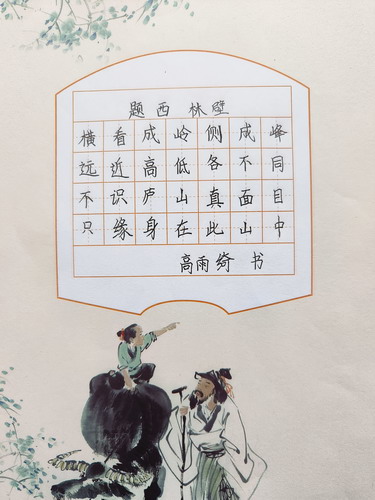 题西林壁
横看成岭侧成峰
远近高低各不同
不识庐山真面目
只缘身在此山中
高雨绮 书